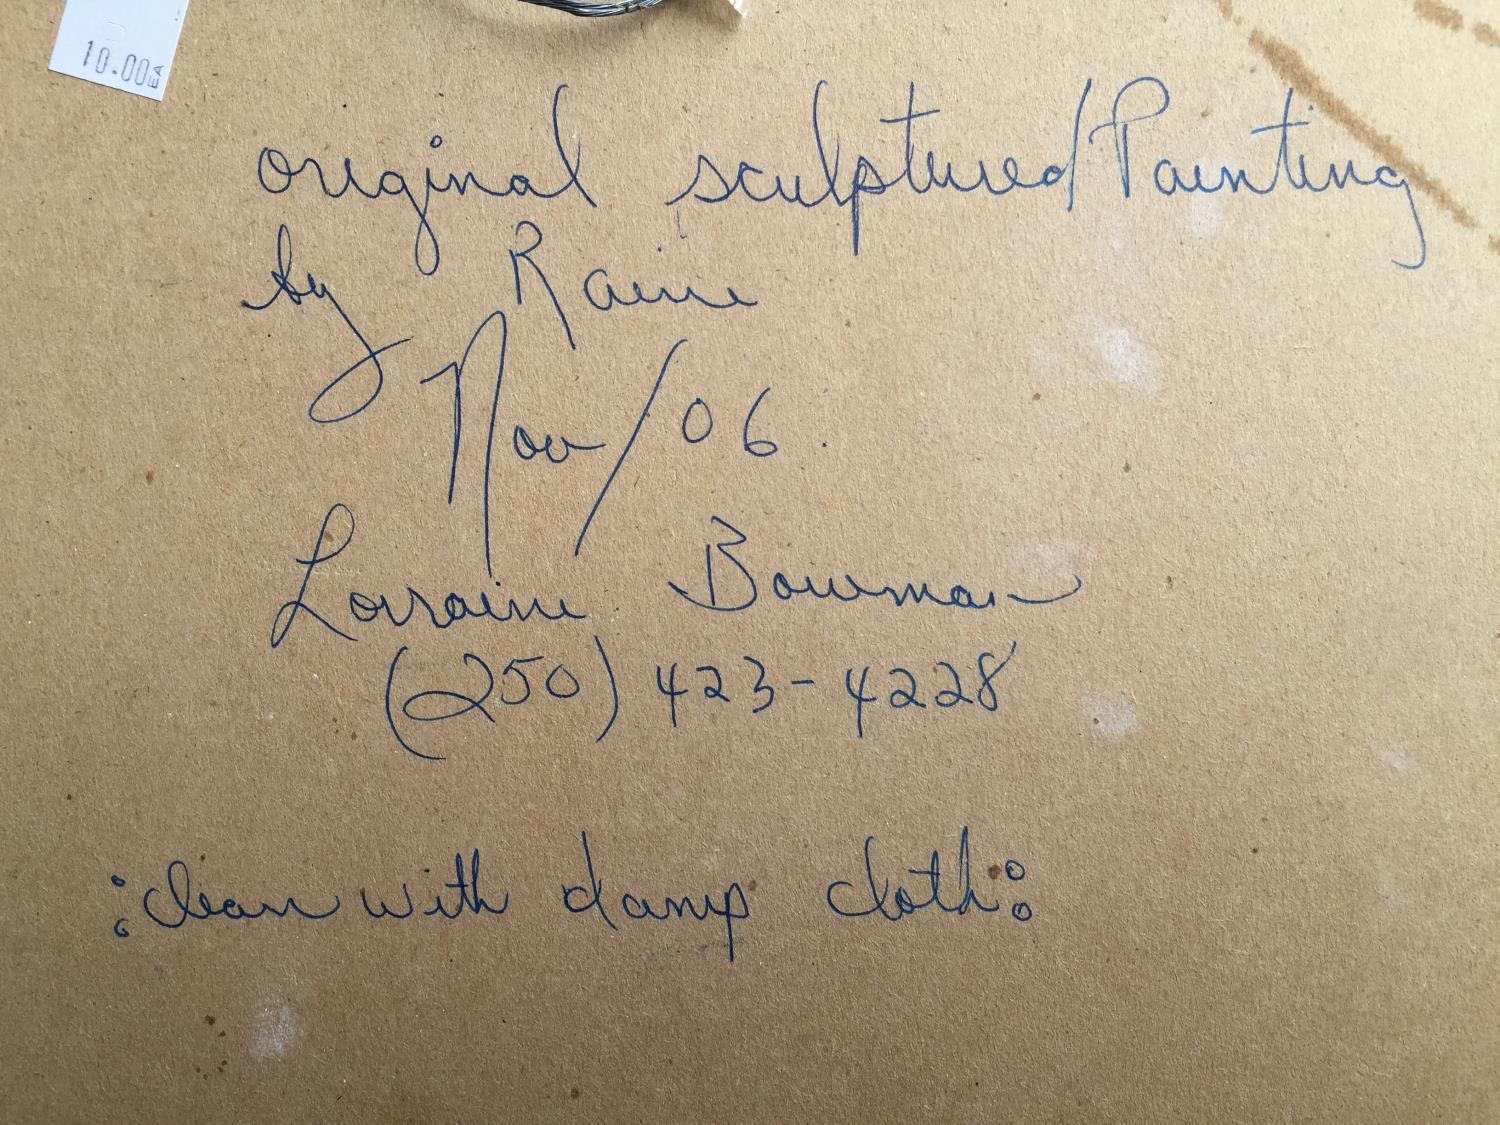 10.00EA
original sculptured Painting
by Raine
Nov/06.
Lorraine Bowman
(250) 423-4228
:clean with damp cloth: